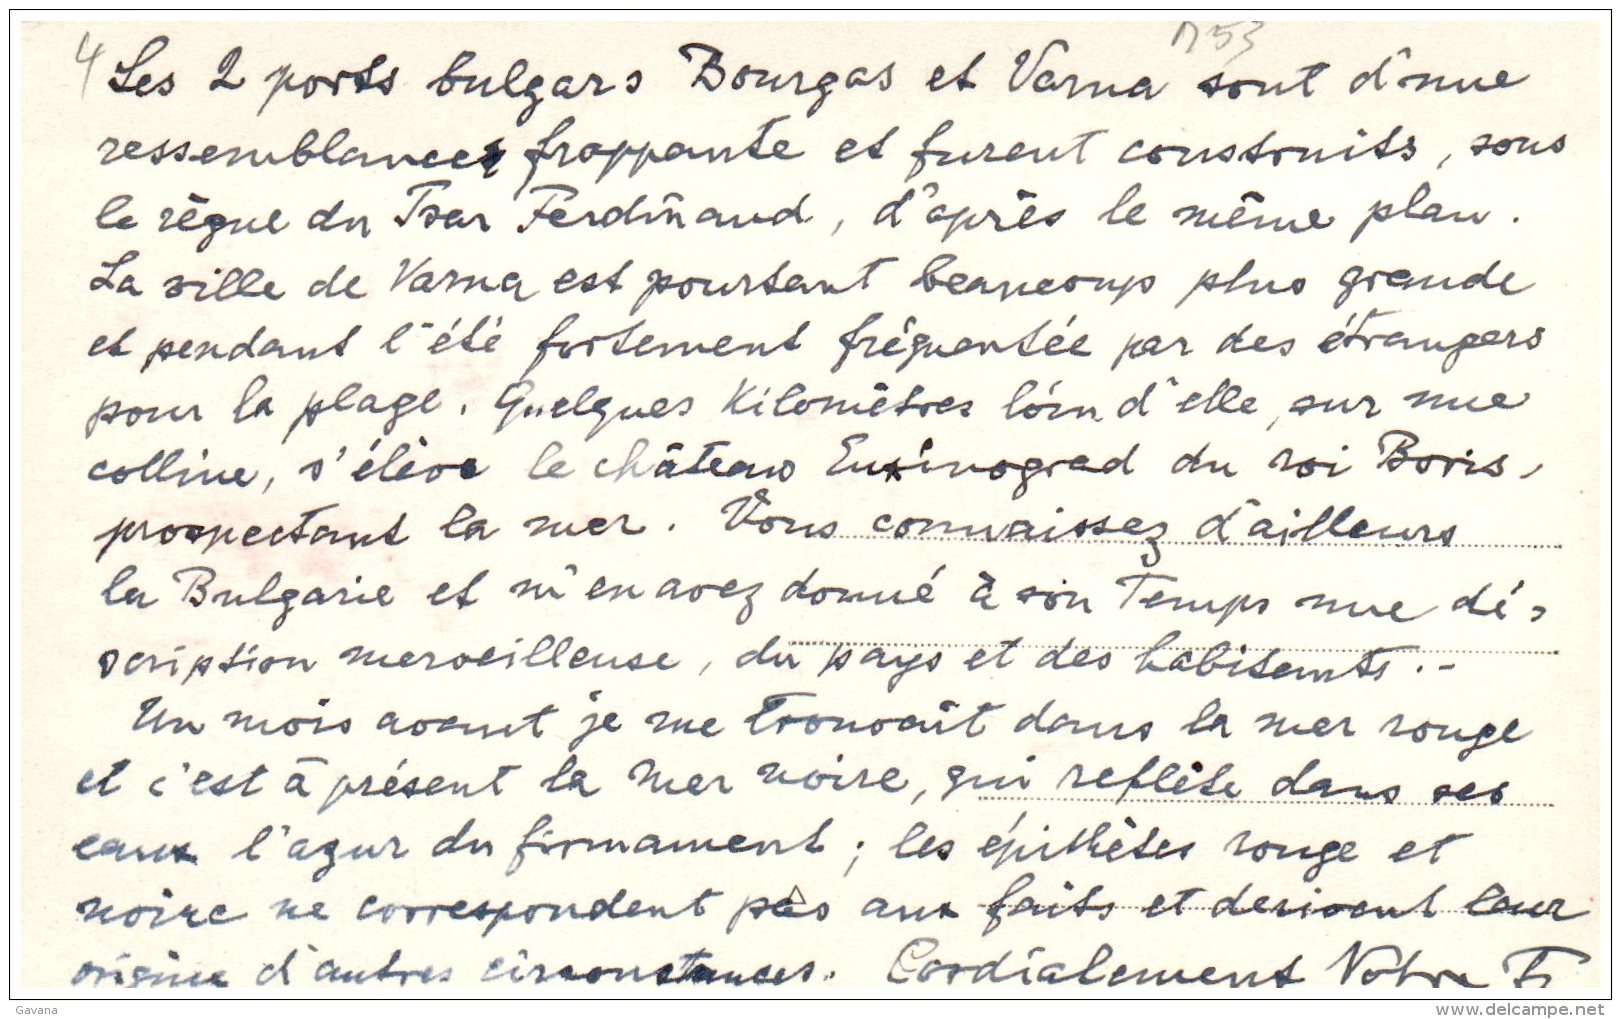 4 Les 2 ports bulgars Bourgas et Varna sont d'une
ressemblance frappante et furent construits, sous
le règne du Tsar Ferdinand, d'après le même plan.
La ville de Varna est pourtant beaucoup plus grande
et pendant l'été fortement fréquentée par des étrangers
pour la plage. Quelques Kilomètres loin d'elle, sur une
colline, s'élève le château Euxinograd du roi Boris,
prospectant la mer. Vous connaissez d'ailleurs
la Bulgarie et m'en avez donné à son Temps une dé-
scription merveilleuse, du pays et des habitants.-
Un mois avant je me trouvait dans la mer rouge
et c'est à présent la mer noire, qui reflète dans ses
eaux l'azur du firmament; les épithètes rouge et
noire ne correspondent pas aux faits et derivent leur
origine d'autres circonstances. Cordialement Votre
Gavana
delcampe.net